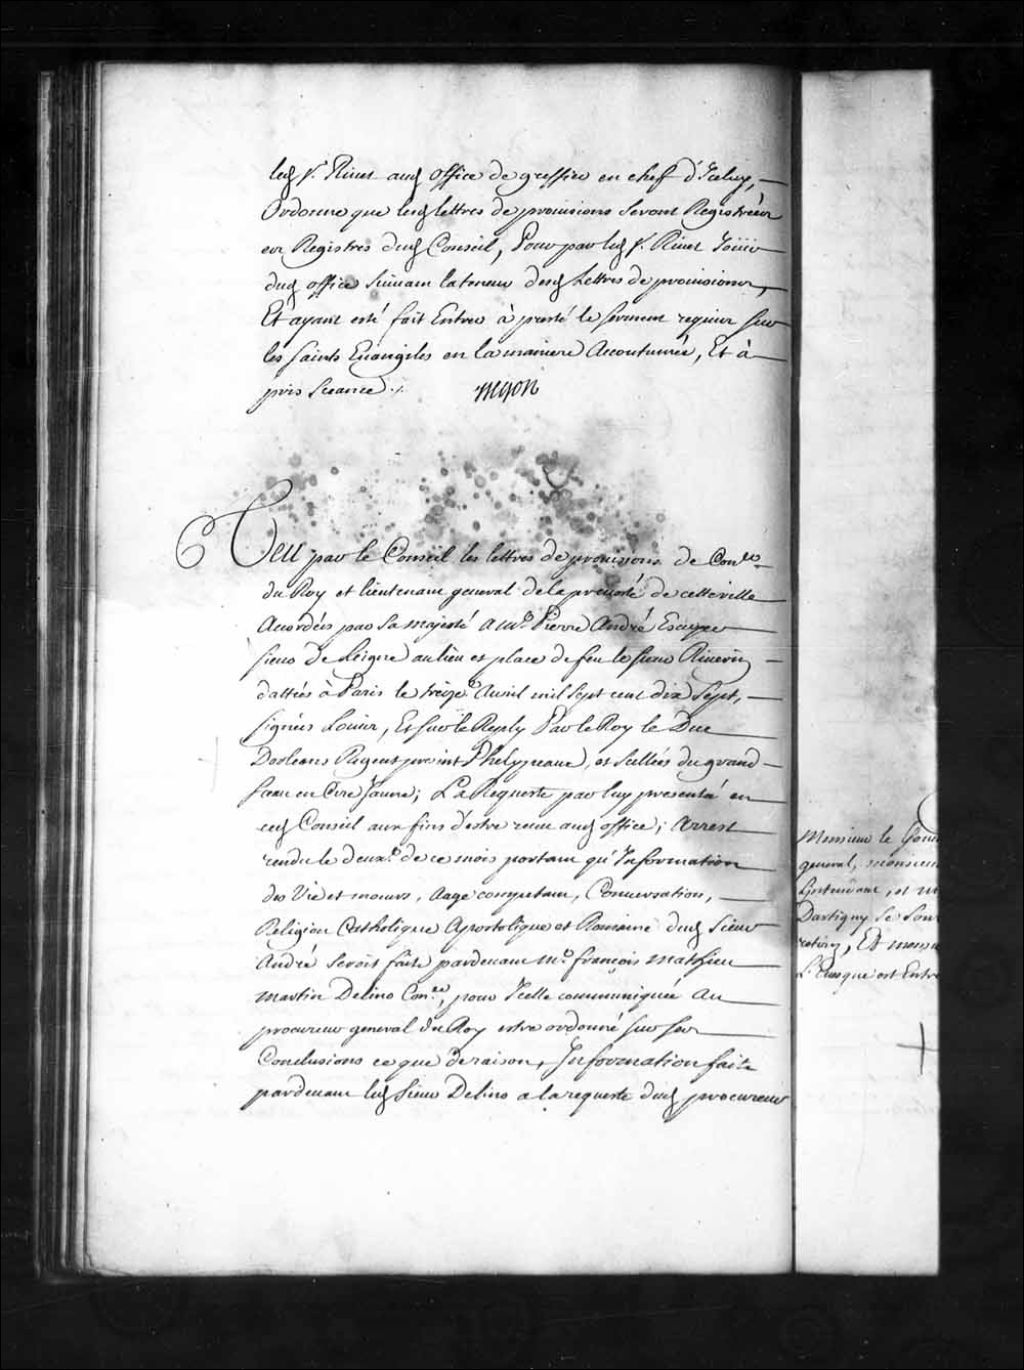 led. Sr. Rivet aud. office de greffier en chef d'Iceluy,
Ordonne que lesd. lettres de provisions seront Registrées
ez Registres dud. Conseil, Pour par led. Sr. Rivet Joüir
dud. office suivant la teneur desd. Lettres de provisions,
Et ayant esté fait Entrer à presté le serment requis sur
les saints Evangiles en la maniere Accoutumée, Et à
pris sceance ./. Begon
Veu par le Conseil les lettres de provisions de Coner.
du Roy et lieutenant general de la prevosté de cette ville
Accordées par sa majesté a Me. Pierre André Escuyer
sieur de Leigne au lieu et place de feu le sieur Riverin
dattées à Paris le treize Avril mil sept cent dix sept,
signées Louis, Et sur le Reply Par le Roy le Duc
Dorleans Regent present Phelypeaux, et scellées du grand
sceau en Cire Jaune; La Requeste par luy presentée en
ced. Conseil aux fins d'estre receu aud. office; Arrest
rendu le deuxe. de ce mois portant qu'Information
des Vie et moeurs, Aage competant, Conversation,
Religion Catholique Apostolique et Romaine dud. sieur
André seroit faite pardevant Me. françois mathieu
martin Delino Coner., pour Icelle communiquée Au
procureur general du Roy estre ordonné sur ses
Conclusions ce que de raison, Information faite
pardevant led. sieur Delino a la requeste dud. procureur
Monsieur le Gou
general, monsieur
Lintendant, et M
Dartigny se sont
retirez, Et monsie
L'Evesque est Entré